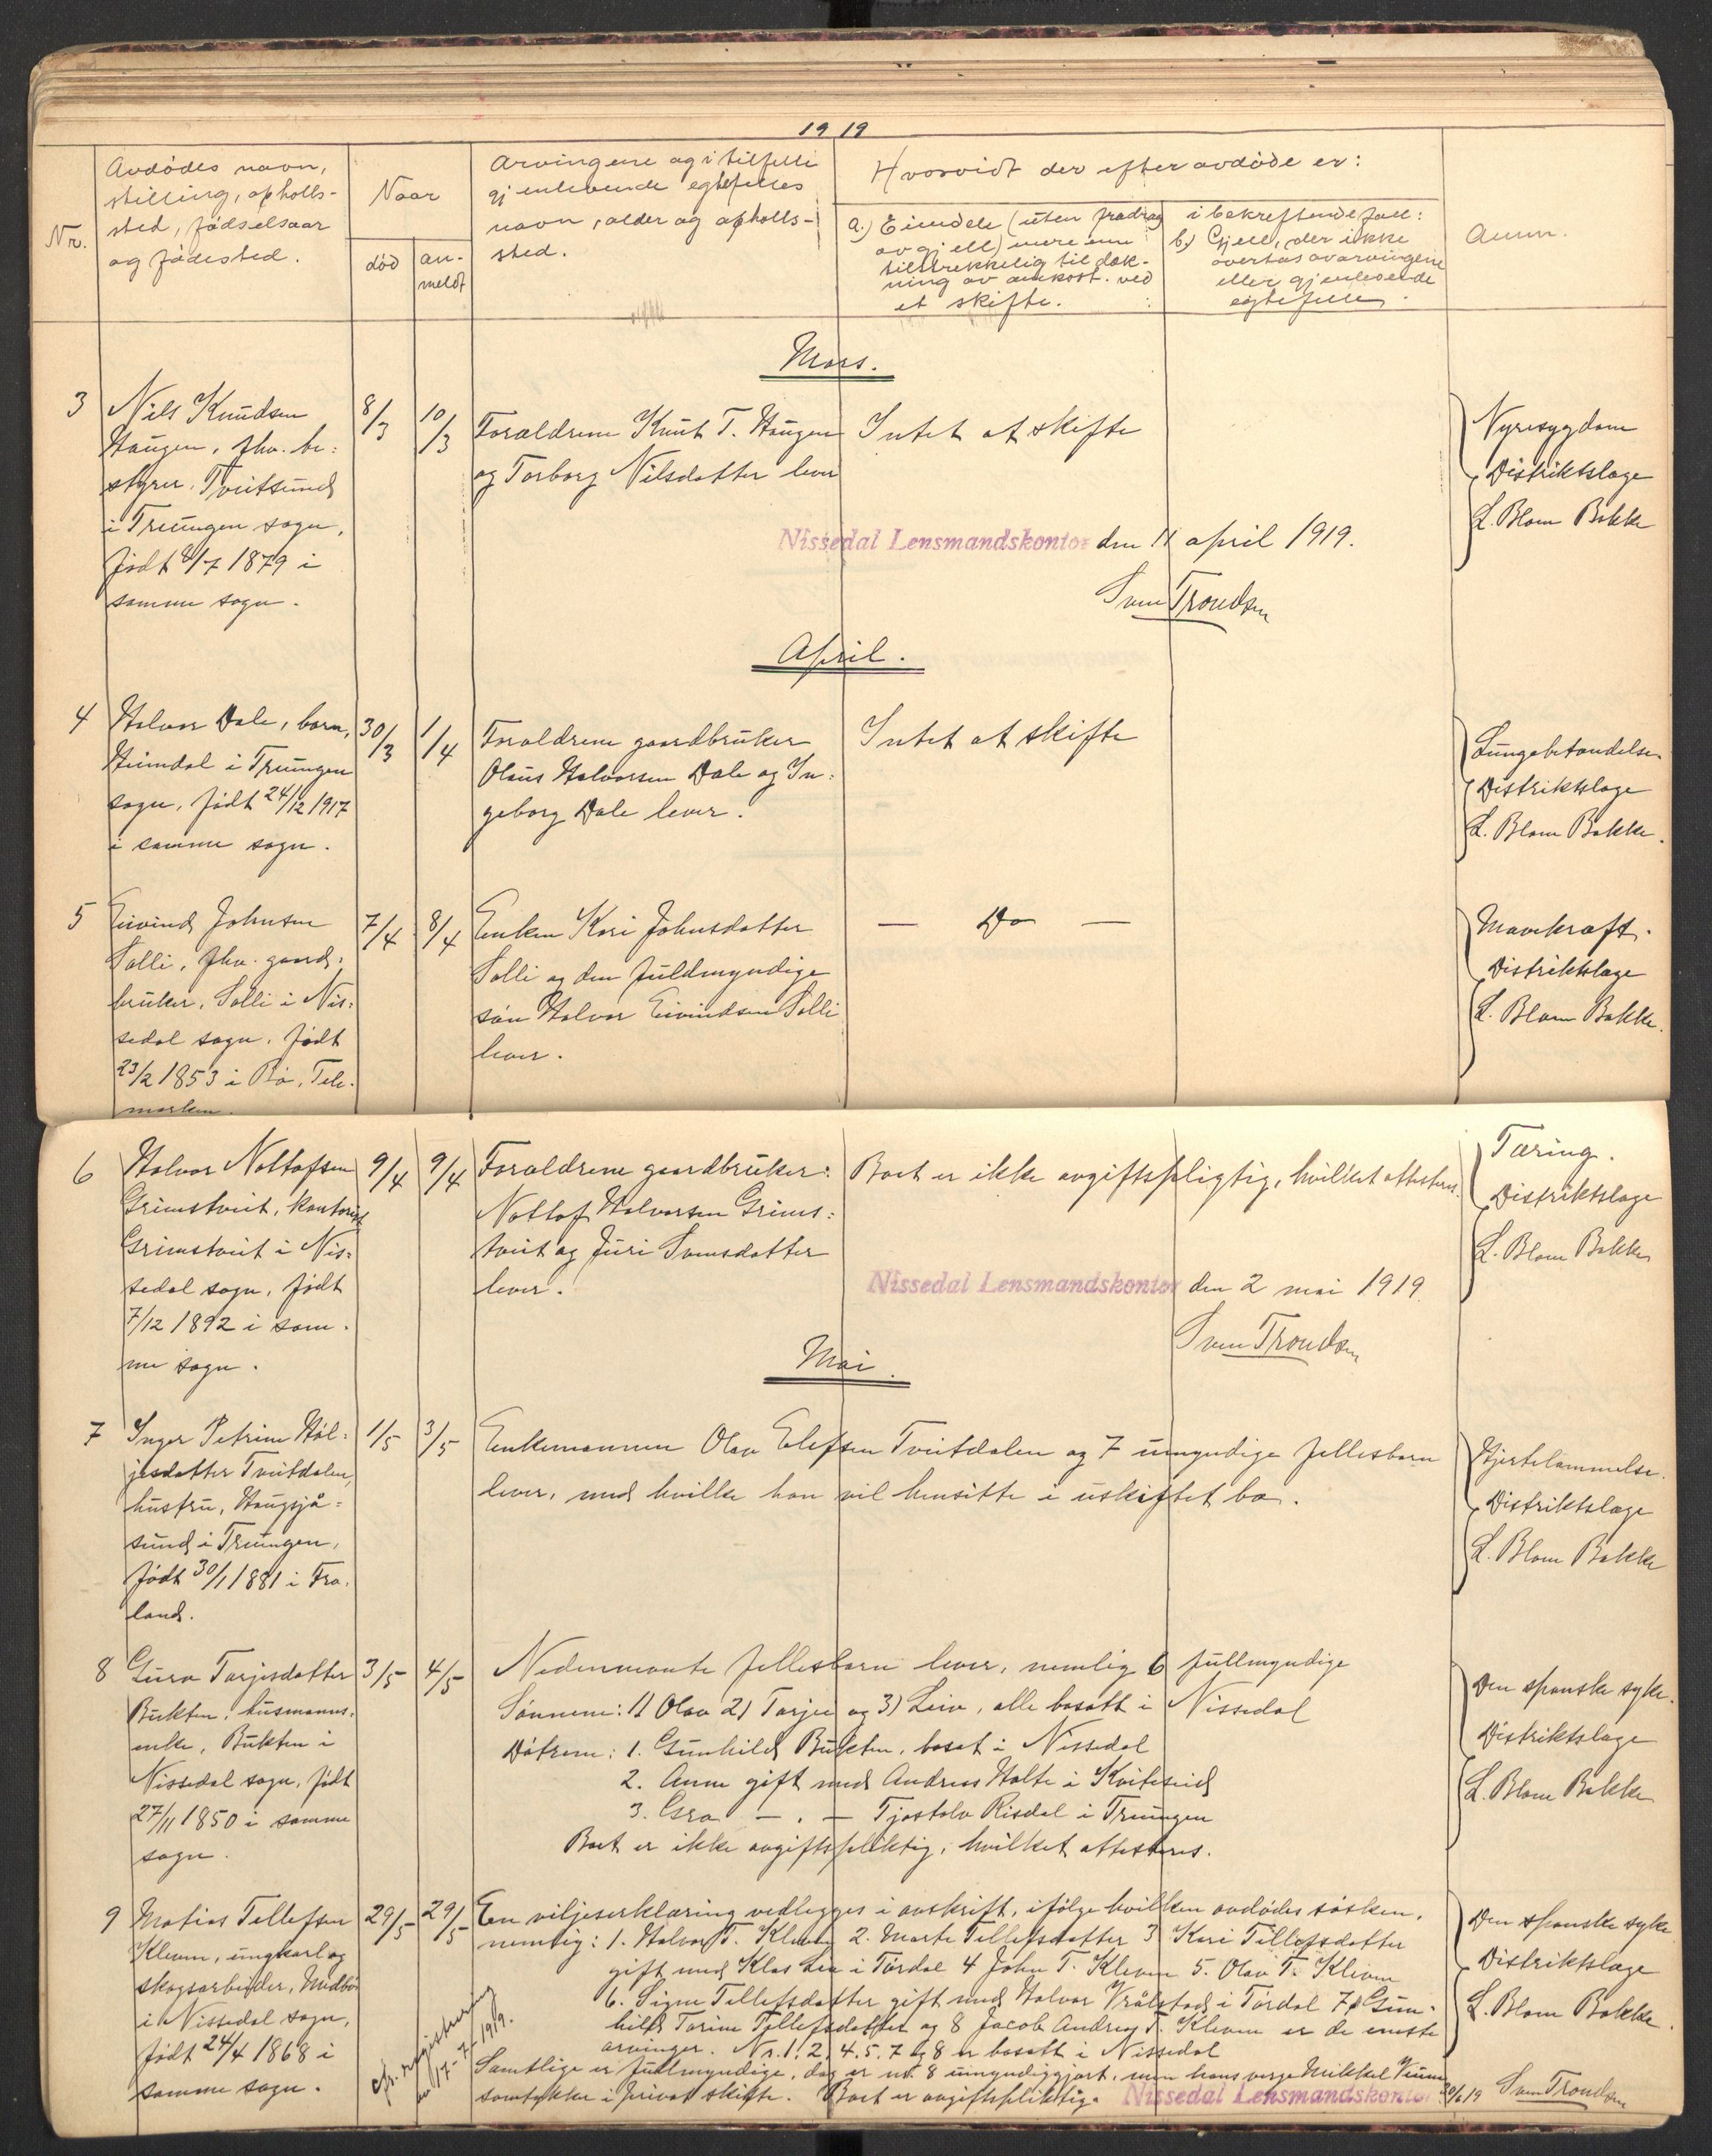 1919
Nr.
Avdödes navn,
stilling, opholls-
sted, födselsaar
og födested.
Naar
död
an-
meldt
Arvingene og i tilfelle
gjenlevende egtefelles
navn, alder og opholls-
sted.
Hvorvidt der efter avdöde er:
a.) Eiendele (uten fradrag
av gjell) mere enn
tilstrekkelig til dæk-
ning av omkost. ved
et skifte.
i bekreftende fall:
b.) Gjell, der ikke
overtas av arvingene
eller gjenlevende
egtefelle.
Anm.
Mars.
3
Nils Knudsen
Haugen, fhv. be=
styrer, Tveitsund
i Treungen sogn,
född 4/7 1879 i
samme sogn.
8/3
10/3
Forældrene Knut T. Haugen
og Torborg Nilsdatter lever
Intet at skifte
Nyresygdom
Distriktslæge
L. Blom Bakke
Nissedal Lensmandskontor den 11 april 1919.
Sven Trondsen
April.
4
Halvor Dale, barn,
Heimdal i Treungen
sogn, född 24/12 1917
i samme sogn.
30/3
1/4
Forældrene gaardbruker
Olaus Halvorsen Dale og In=
geborg Dale lever.
Intet at skifte
Lungebetændelse.
Distriktslæge
L. Blom Bakke.
5
Eivind Johnsen
Solli, fhv. gaard=
bruker, Solli i Nis=
sedal sogn, född
23/2 1853 i Bö, Tele-
marken.
7/4
8/4
Enken Kari Johnsdatter
Solli og den fuldmyndige
sön Halvor Eivindsen Solli
lever.
— Do —
Mavekræft.
Distriktslæge
L. Blom Bakke.
6
Halvor Nottofsen
Grimstveit, kontorist
Grimstveit i Nis=
sedal sogn, född
7/12 1892 i sam-
me sogn.
9/4
9/4
Forældrene gaardbruker:
Nottof Halvorsen Grims=
tveit og Juri Svensdatter
lever.
Boet er ikke avgiftspligtig, hvilket attesteres.
Tæring.
Distriktslæge
L. Blom Bakke
Nissedal Lensmandskontor den 2 mai 1919
Sven Trondsen
Mai.
7
Inger Petrine Höl=
jesdatter Tveitdalen,
hustru, Haugsjå=
sund i Treungen,
född 30/1 1881 i Fro-
land.
1/5
3/5
Enkemannen Olav Elefsen Tveitdalen og 7 umyndige fellesbarn
lever, med hvilke han vil hensitte i uskiftet bo.
Hjertelammelse.
Distriktslæge
L. Blom Bakke
8
Gura Tarjesdatter
Bukten, husmanns-
enke, Bukten i
Nissedal sogn, född
27/11 1850 i samme
sogn.
3/5
4/5
Nedennevnte fellesbarn lever, nemlig 6 fullmyndige
Sönnene: 1) Olav 2) Tarjei og 3) Leiv, alle bosatt i Nissedal
Dötrene: 1. Gunhild Bukten, bosat i Nissedal
2. Anne gift med Andreas Holte i Kviteseid
3. Gro — . — Tjostolv Risdal i Treungen
Boet er ikke avgiftspliktig, hvilket attesteres.
Den spanske syke.
Distriktslæge
L. Blom Bakke
9
Matias Tellefsen
Kleven, ungkarl og
skogsarbeider, Midbö
i Nissedal sogn,
född 24/4 1868 i
samme sogn.
29/5
29/5
En viljeserklæring vedlegges i avskrift, ifölge hvilken avdödes sösken,
nemlig: 1. Halvor T. Kleven 2. Marte Tellefsdatter 3 Kari Tellefsdatter
gift med Klas Lea i Tördal 4 John T. Kleven 5. Olav T. Kleven
6. Signe Tellefsdatter gift med Halvor Vrålstad i Tördal 7 Gun-
hild Torine Tellefsdatter og 8 Jacob Andreas T. Kleven er de eneste
arvinger. Nr. 1. 2. 4. 5. 7 og 8 er bosatt i Nissedal
Samtlige er fullmyndige, dog er nr. 8 umyndiggjort, men hans verge Mikkel
samtykker i privat skifte. Boet er avgiftspliktig.
cfr. registrering
17-7-1919.
Den spanske syke
Distriktslæge
L. Blom Bakke.
Nissedal Lensmandskontor 20/6 19 Sven Trondsen